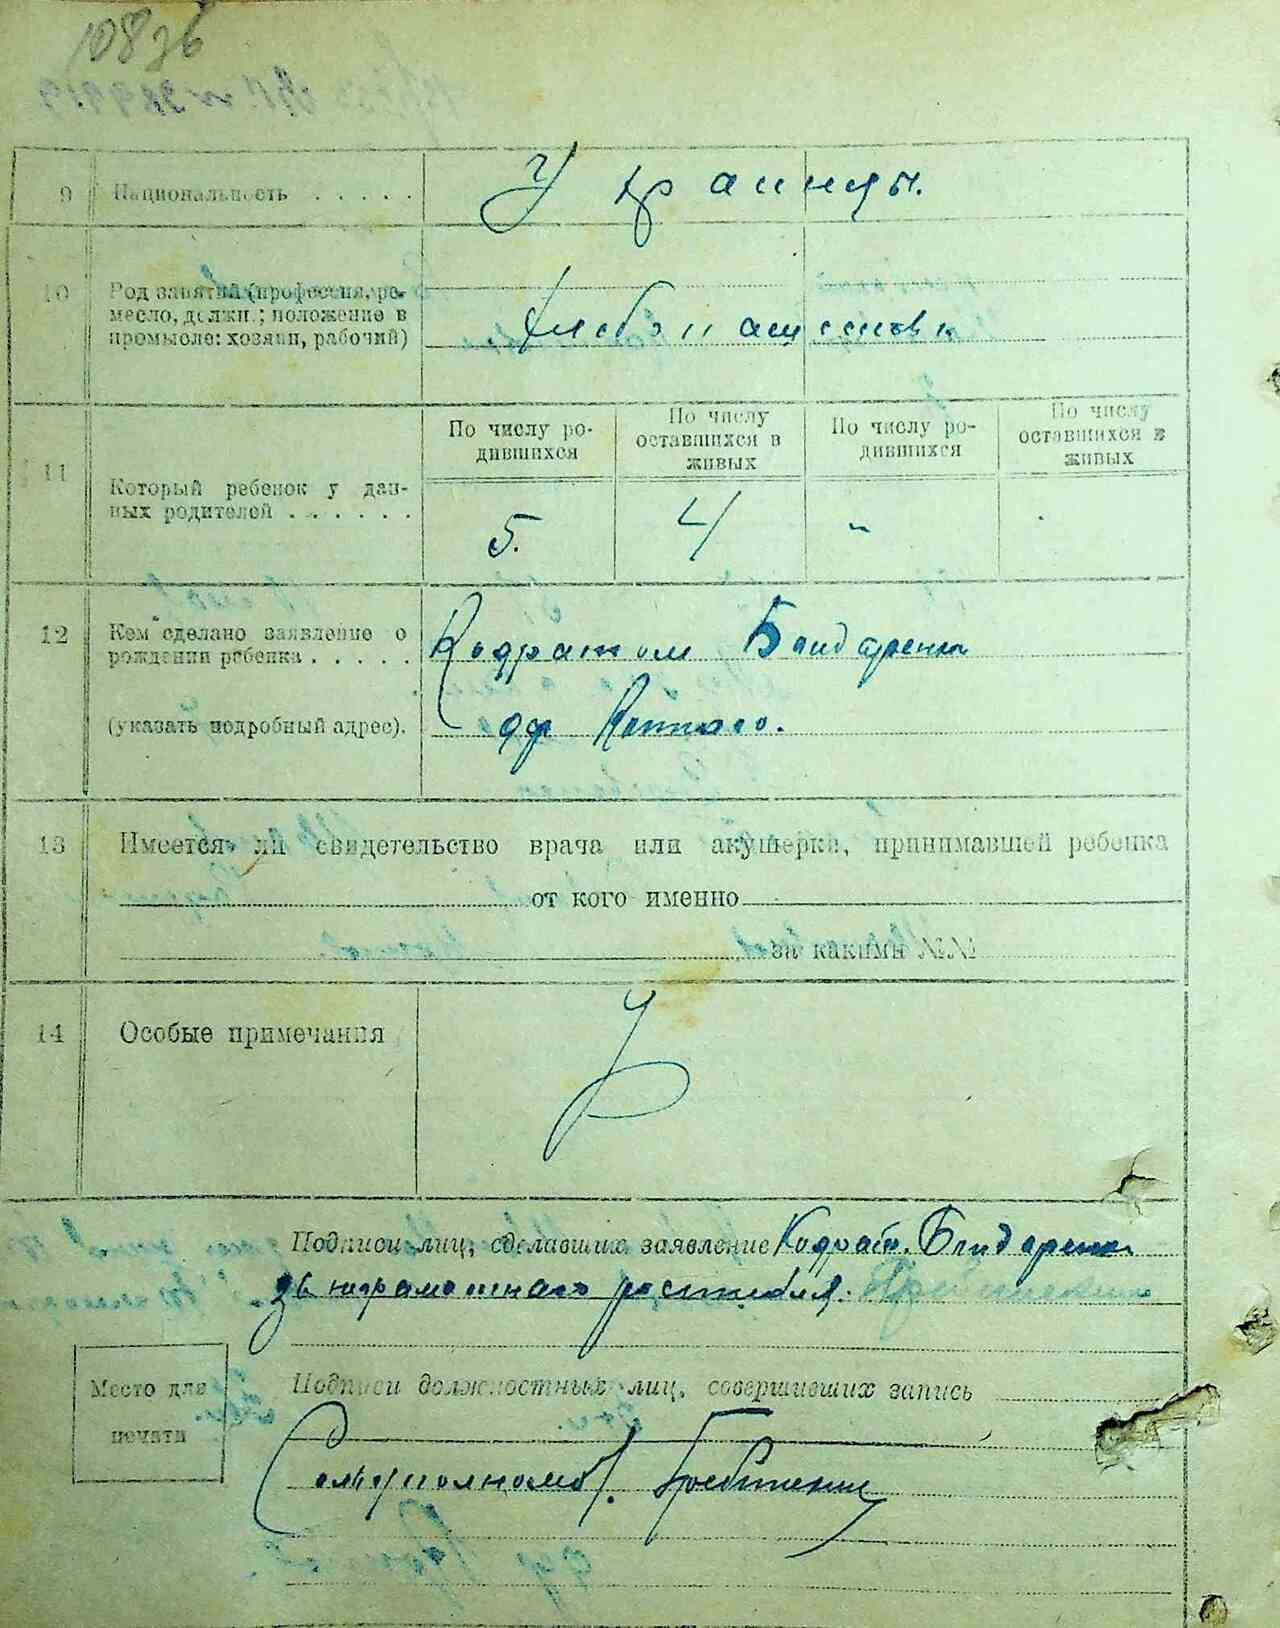 1083б
9 Национальность . . . . . Украинцы.
10 Род занятий (профессия, ре-
месло, должн.; положение в
промысле: хозяин, рабочий) Хлебопашество
По числу ро-
дившихся
По числу
оставшихся в
живых
По числу ро-
дившихся
По числу
оставшихся в
живых
11 Который ребенок у дан-
ных родителей . . . . . . 5. 4 "
12 Кем сделано заявление о
рождении ребенка . . . . . Кодратом Бондаренко
(указать подробный адрес).
13 Имеется ли свидетельство врача или акушерки, принимавшей ребенка
от кого именно
за какими №№
14 Особые примечания
Подписи лиц, сделавших заявление Кодрат. Бондаренко
Подписи должностных лиц, совершивших запись
Место для
печати